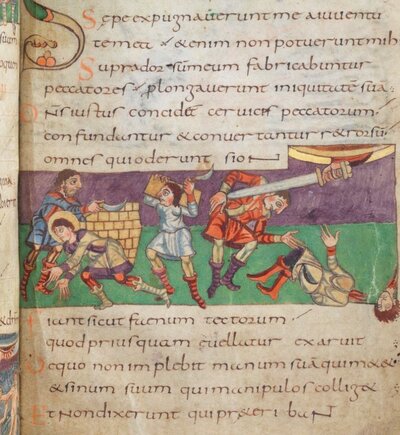 Sepe expugnauerunt me aiuuentu
te mea &enim non potuerunt mih
Supra dorsum eum fabricabuntur
peccatores plongauerunt iniquitatē suā
Dns iustus concid& ceruicis peccatorum
confundantur & conuertantur r&rorsū
omnes qui oderunt sioN
Fiant sicut faenum tectorum
quod priusquam euellatur exaruit
Dequo non implebit manum suā qui m&&
& sinum suum qui manipulos collig&
Et Non dixerunt qui pr&eribaN